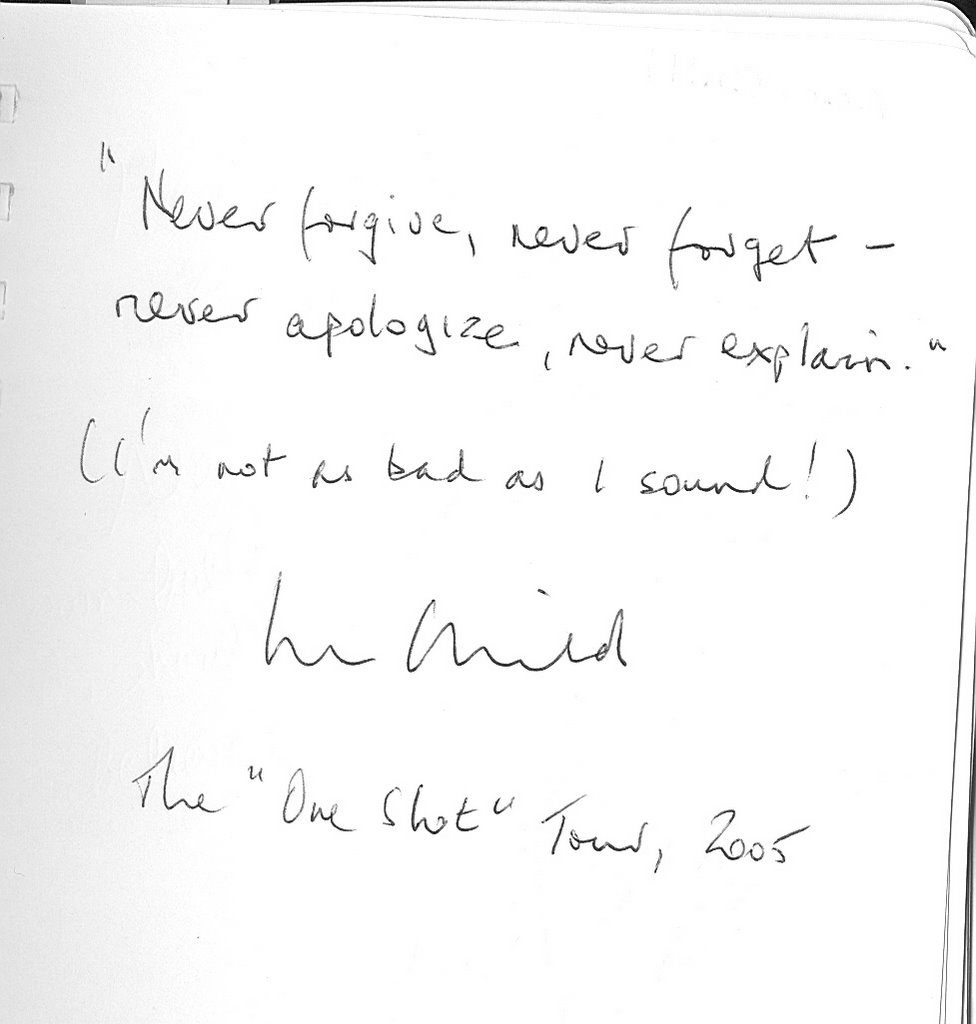 "Never forgive, never forget –
never apologize, never explain."
(I'm not as bad as I sound!)
Lee Child
The "One Shot" Tour, 2005